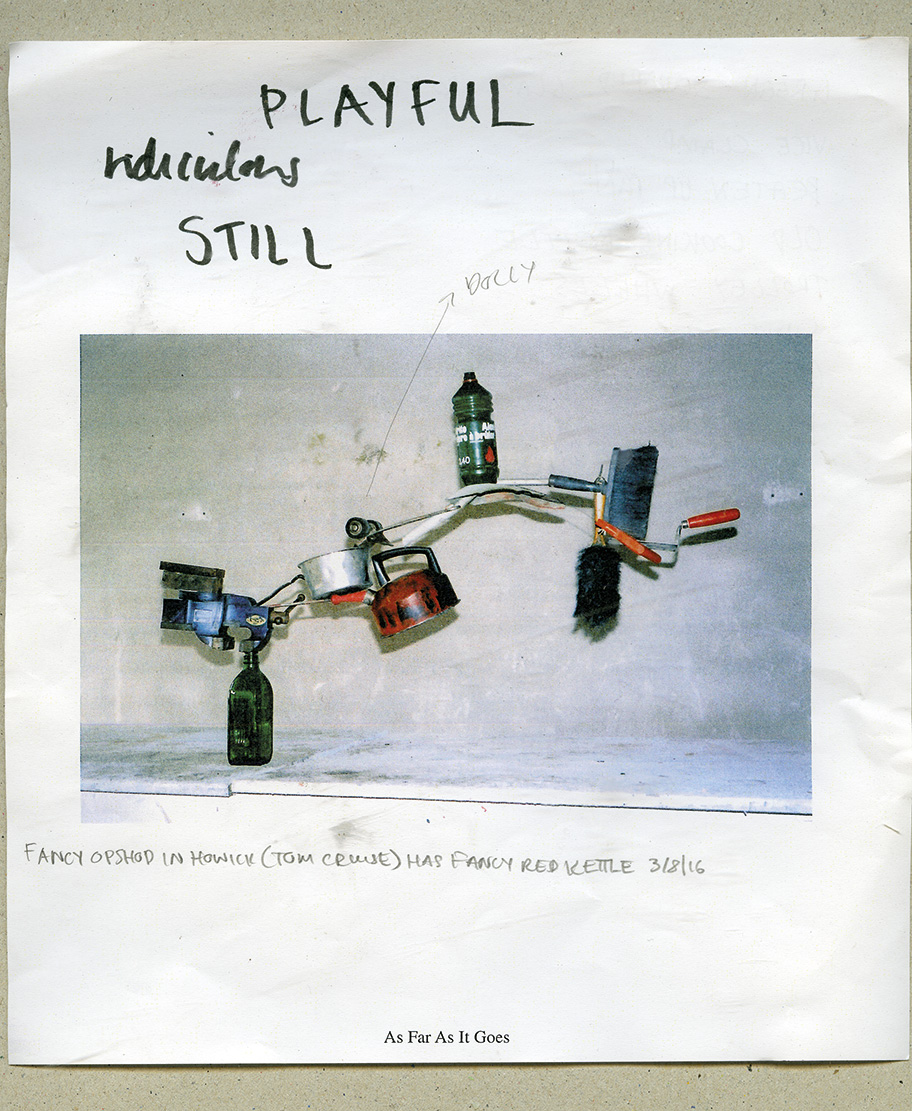 PLAYFUL
ridiculous
STILL
DOLLY
à brûler
FANCY OPSHOP IN HOWICK (TOM CRUISE) HAS FANCY RED KETTLE 3/8/16
As Far As It Goes